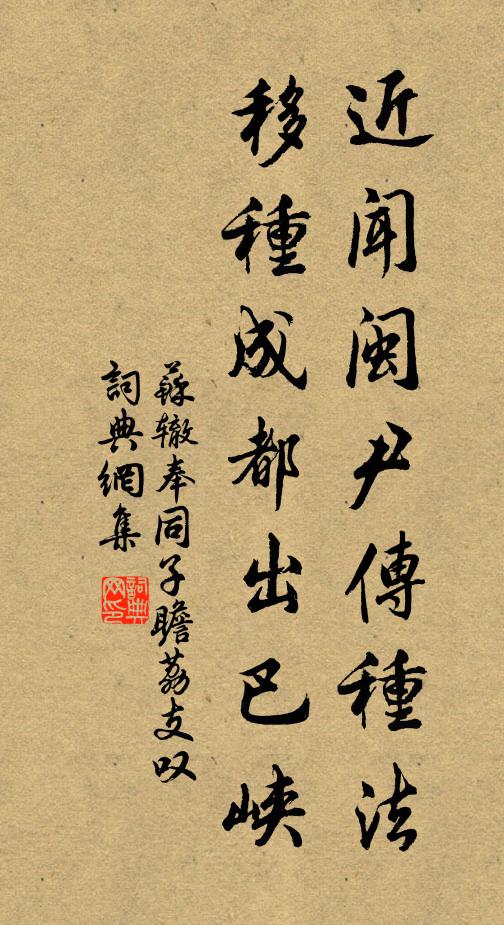 近闻闽尹傳種法
移種成都出巴峡
蘇辙奉同子瞻荔支叹
詞典網集
詞典网印